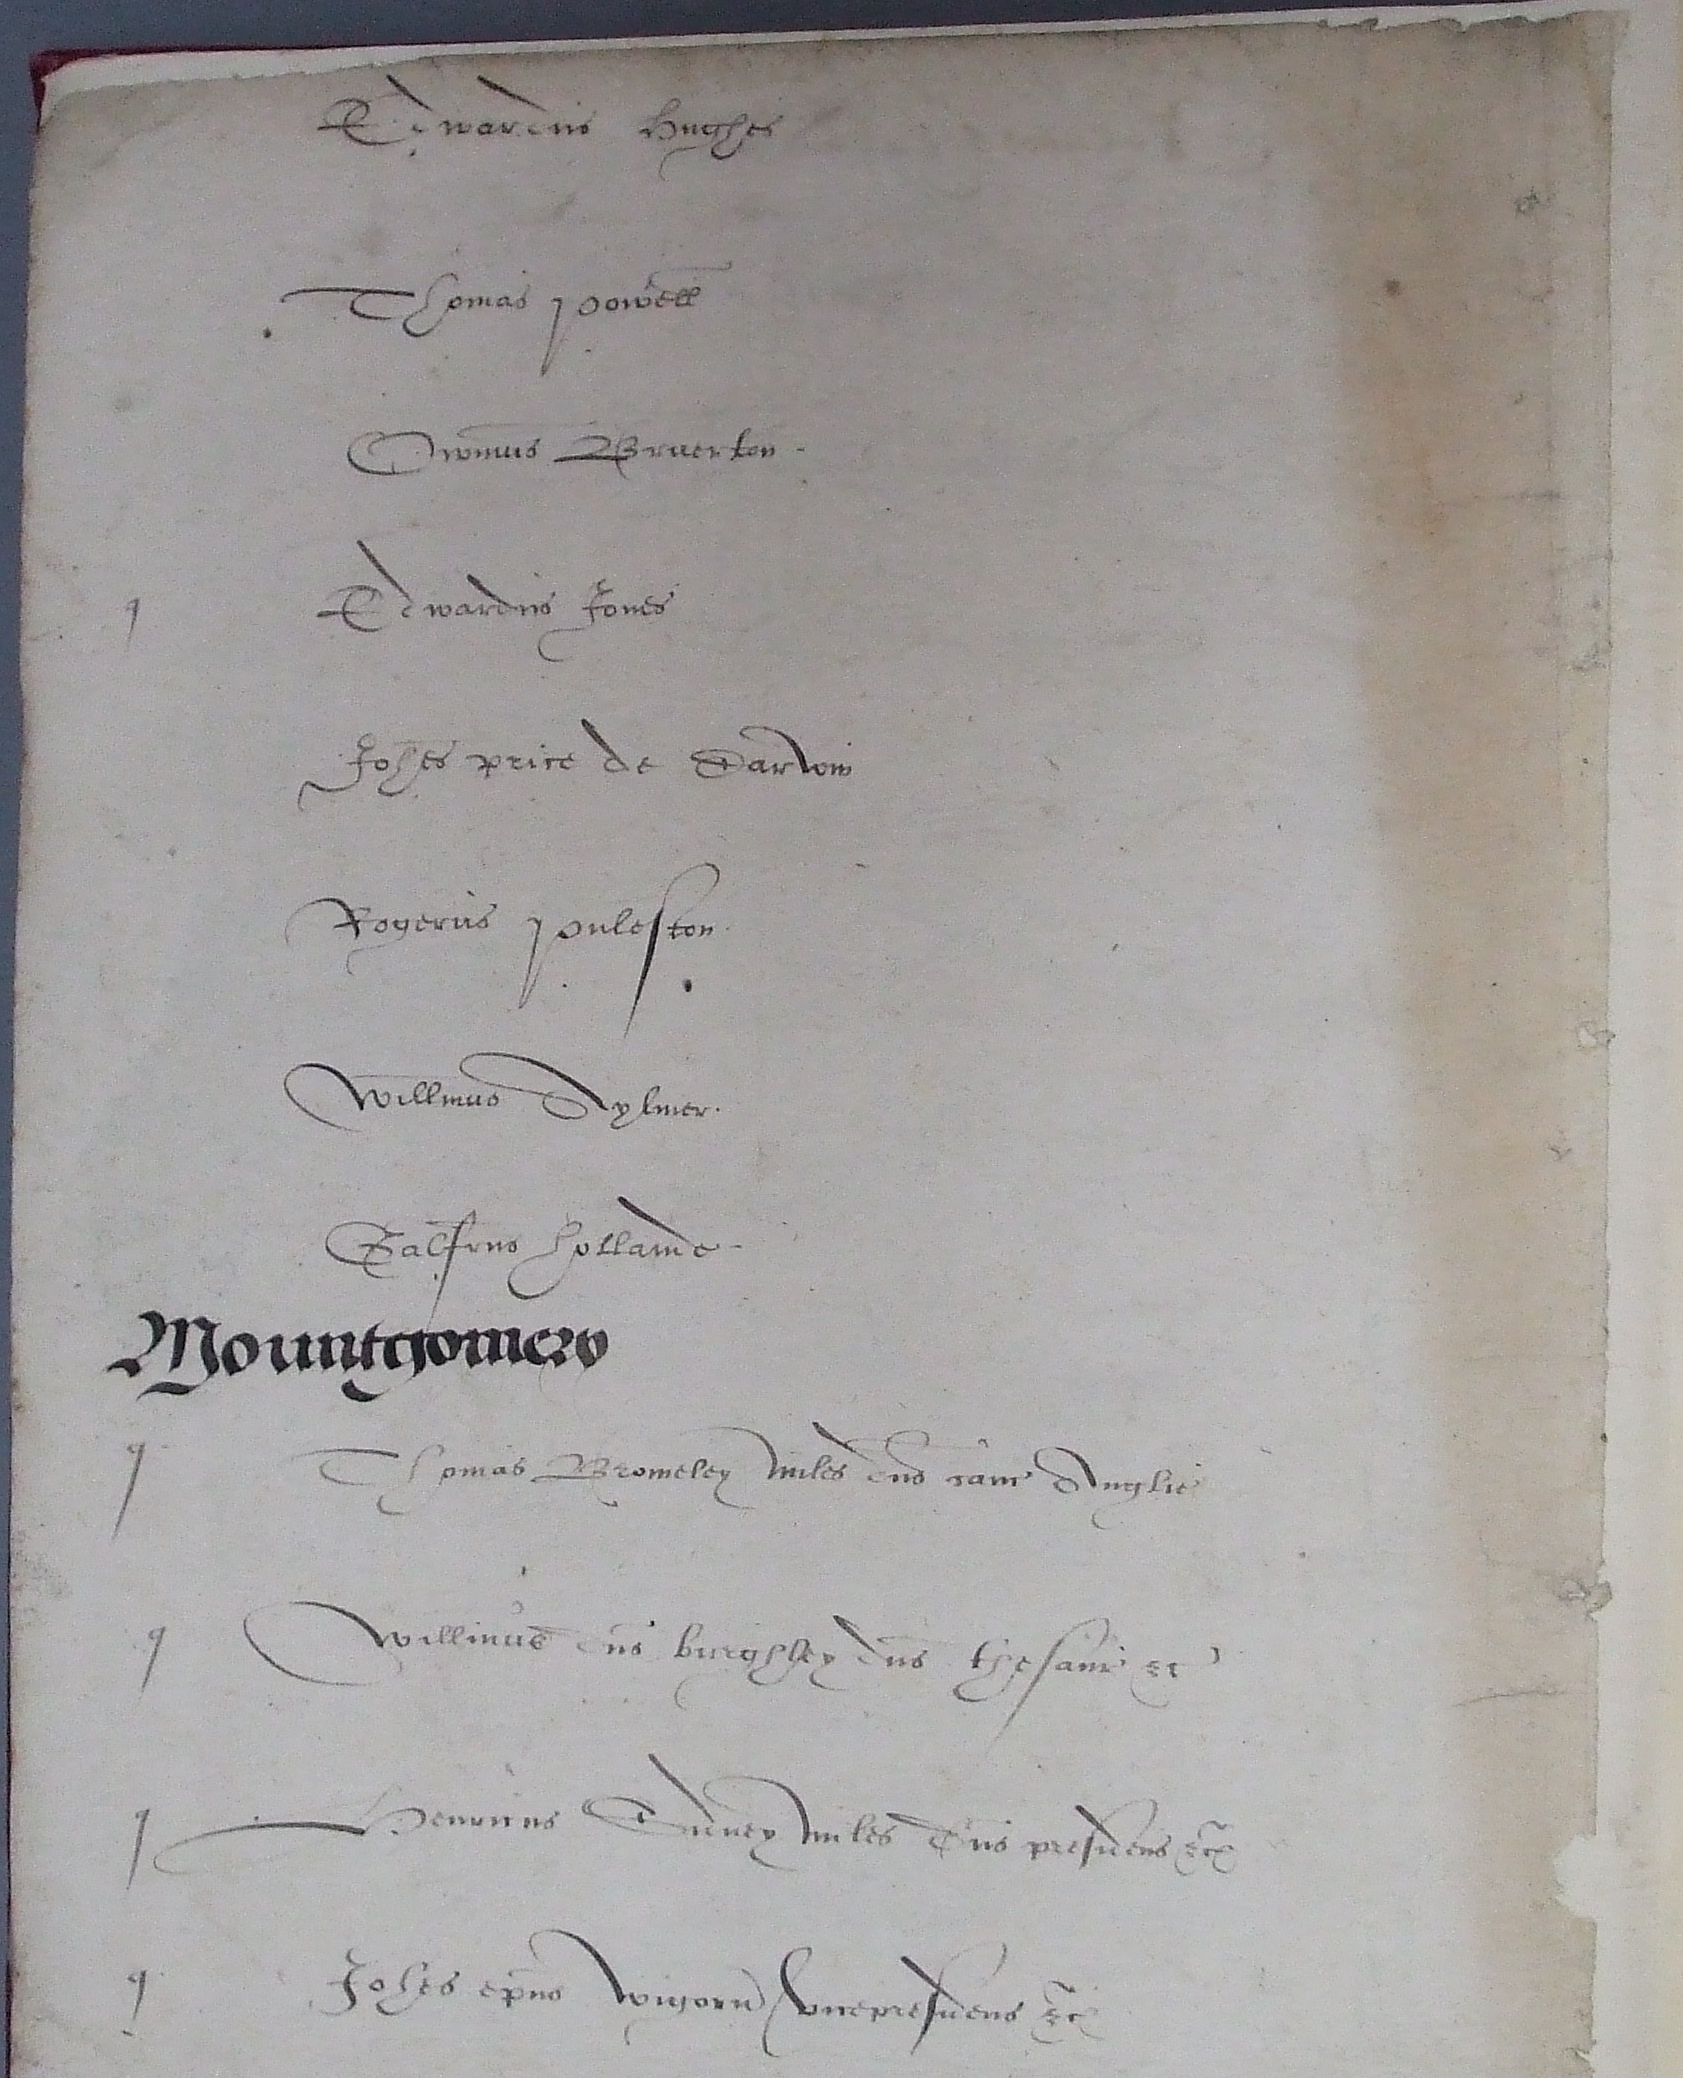 Edwardus Hughes
Thomas Powell
Owinus Bruerton
q Edwardus Jones
Johes Price de Darwin
Rogerus Puleston
Willmus Aylmer
Galfrus Hollande
Mountgomery
q Thomas Bromeley miles dns canc Anglie
q Willmus dns Burghley dns thesaur &c
q Henricus Sidney miles dns presidens &c
q Johes epus Wigorn vicepresidens &c